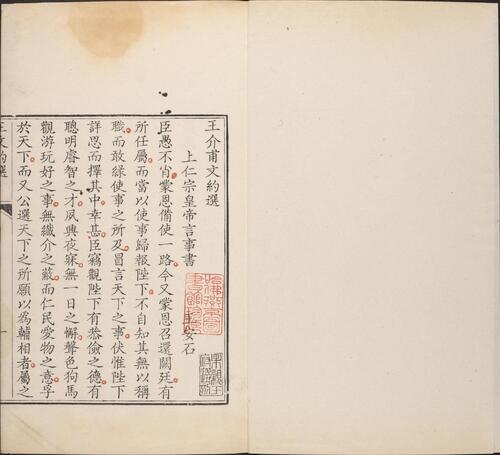 王介甫文約選
上仁宗皇帝言事書
王安石
臣愚不肖蒙恩備使一路今又蒙恩召還闕廷有
所任屬而當以使事歸報陛下不自知其無以稱
職而敢緣使事之所及冒言天下之事伏惟陛下
詳思而擇其中幸甚臣竊觀陛下有恭儉之德有
聰明睿智之才夙興夜寐無一日之懈聲色狗馬
觀游玩好之事無纖介之蔽而仁民愛物之意孚
於天下而又公選天下之所願以為輔相者屬之
王文約選
一